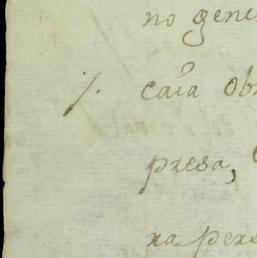 no gene
./. caía obr
presa,
ra pers